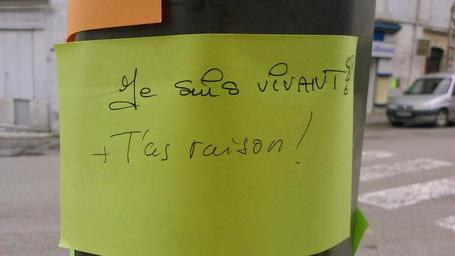 Je suis vivant!
+ T'as raison!